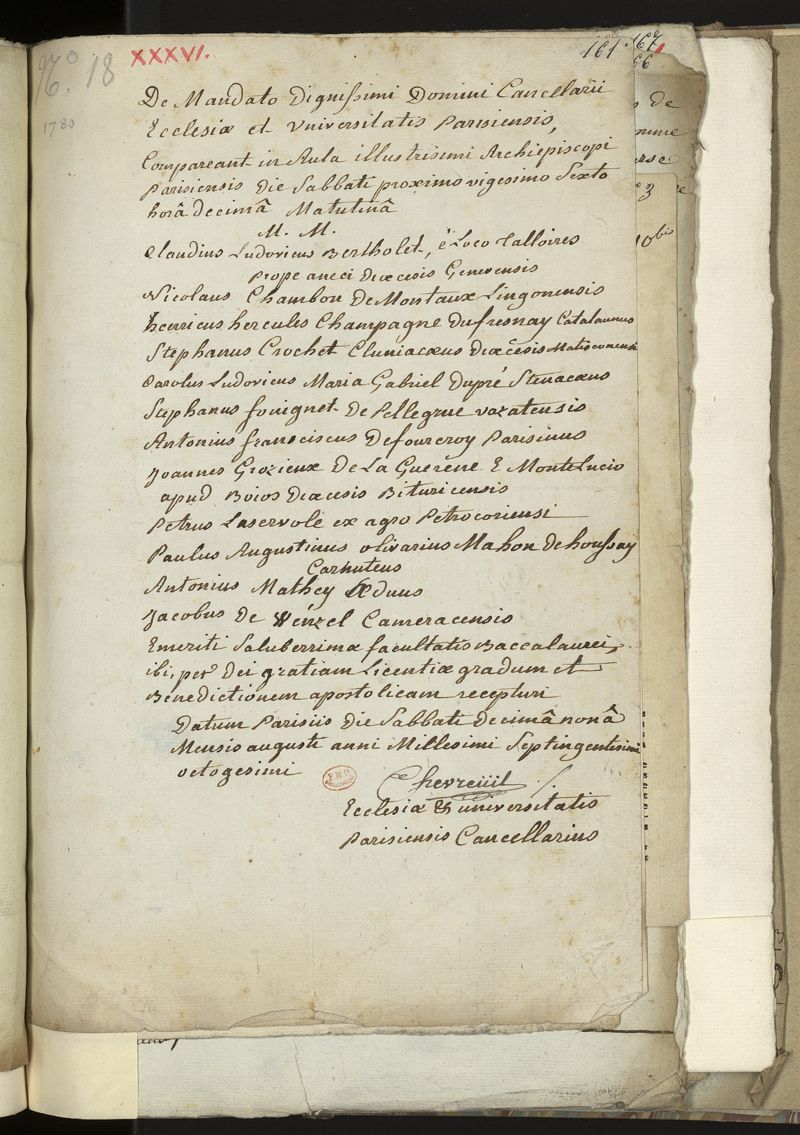 N.º 18
XXXVI.
161.
167
66
1780
De Mandato Dignissimi Domini Cancellarii
Ecclesiæ et Vniversitatis Parisiensis,
Compareant in Aula illustrisimi Archiepiscopi
Parisiensis die Sabbati proximo vigesimo Sexto
horâ decimâ Matutinâ
M. M.
Claudius Ludovicus Bertholet, è Loco Talloires
Prope aneci diœcesis Genevensis
Nicolaus Chambon De Montaux Lingonensis
henricus hercules Champagne Dufresnay Catalaunus
Stephanus Crochet Cluniacæus diœcesis Matisconensis
Carolus Ludovicus Maria Gabriel Dupré Stenacæus
Stephanus fouignet De Pellegrue vazatensis
Antonius franciscus Defourcroy Parisinus
Joannes Grozieux De La Guerene E Monte Lucio
apud Boios diœcesis Bituricensis
Petrus Laservole ex agro Petrocoriensi
Paulus Augustinus olivarius Mahon de houssay
Carnuteus
Antonius Mathey Æduus
Jacobus De Wenzel Cameracensis
Emeriti Saluberrimæ facultatis Baccalaurei,
ibi, per Dei gratiam Licentiæ gradum et
Benedictionem apostolicam recepturi
Datum Parisiis die Sabbati decimâ nonâ
Mensis augusti anni Millesimi Septingentesimi
octogesimi
Chevreüil
Ecclesiæ & universitatis
Parisiensis Cancellarius